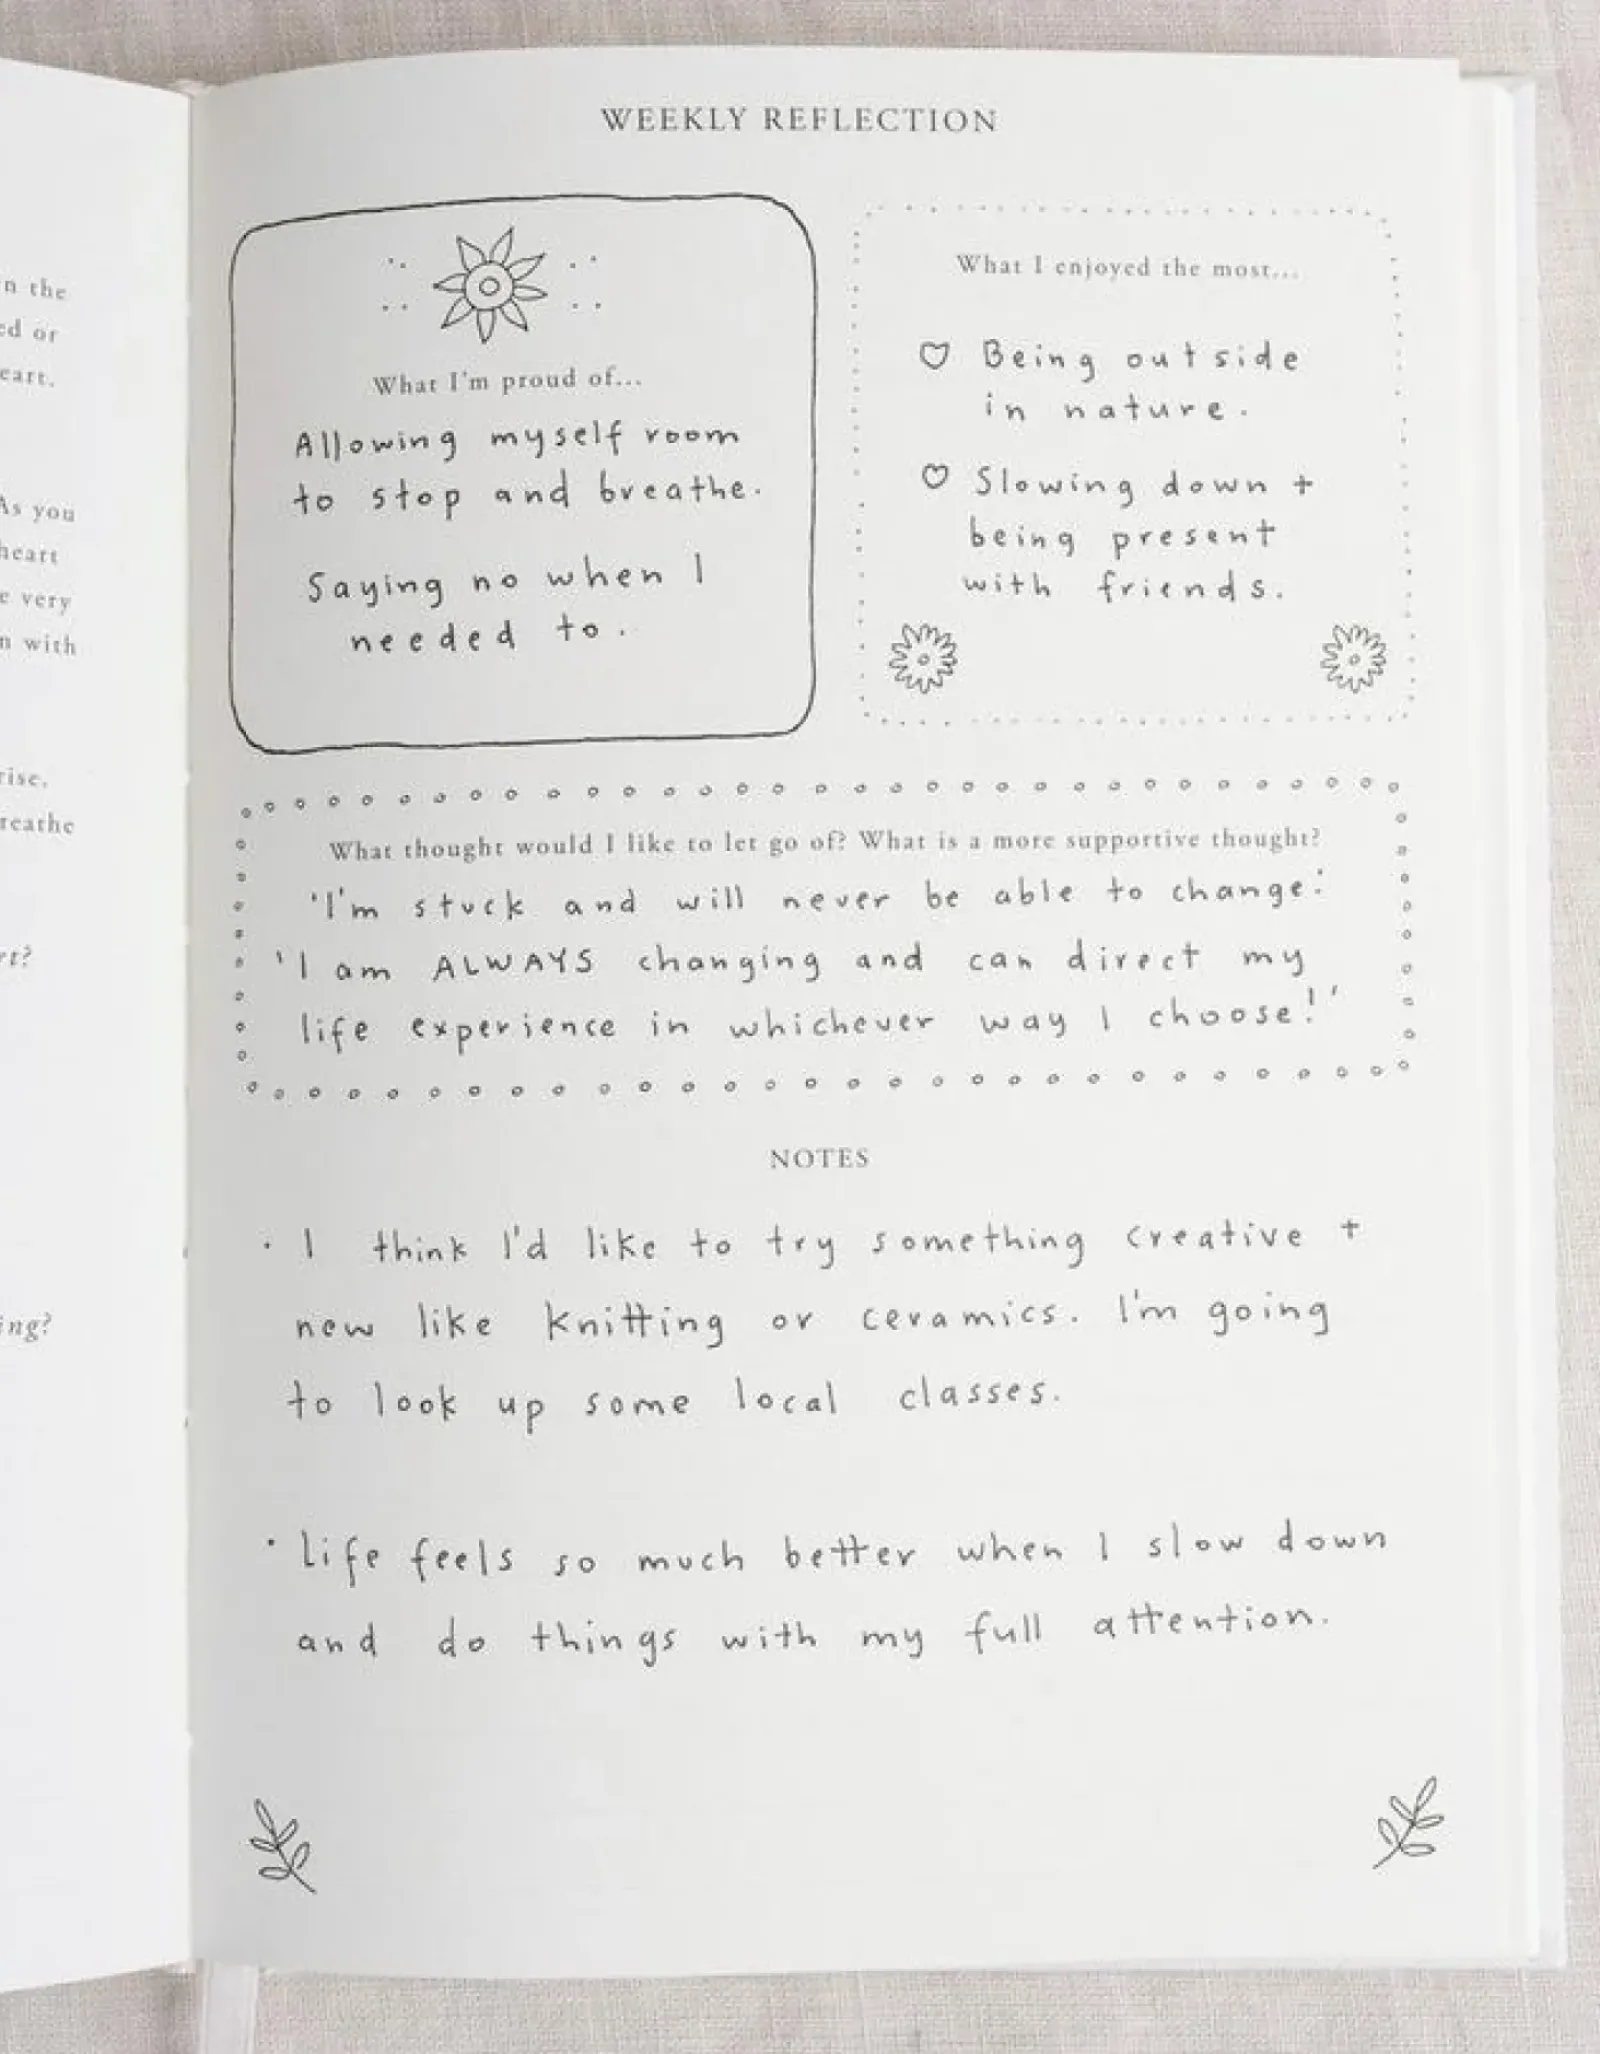 n the
ed or
eart.
As you
heart
e very
n with
rise,
reathe
rt?
ing?
WEEKLY REFLECTION
What I'm proud of...
Allowing myself room
to stop and breathe.
Saying no when I
needed to.
What I enjoyed the most...
♡ Being outside
in nature.
♡ Slowing down +
being present
with friends.
What thought would I like to let go of? What is a more supportive thought?
'I'm stuck and will never be able to change.'
'I am ALWAYS changing and can direct my
life experience in whichever way I choose!'
NOTES
· I think I'd like to try something creative +
new like knitting or ceramics. I'm going
to look up some local classes.
· Life feels so much better when I slow down
and do things with my full attention.